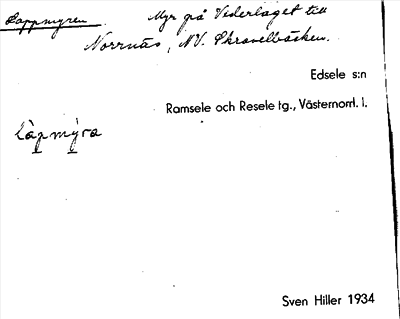 Lappmyren. Myr på Vederlaget till
Norrnäs, NV. Skravelbäcken.
Edsele s:n
Ramsele och Resele tg., Västernorrl. l.
làpmýra
Sven Hiller 1934